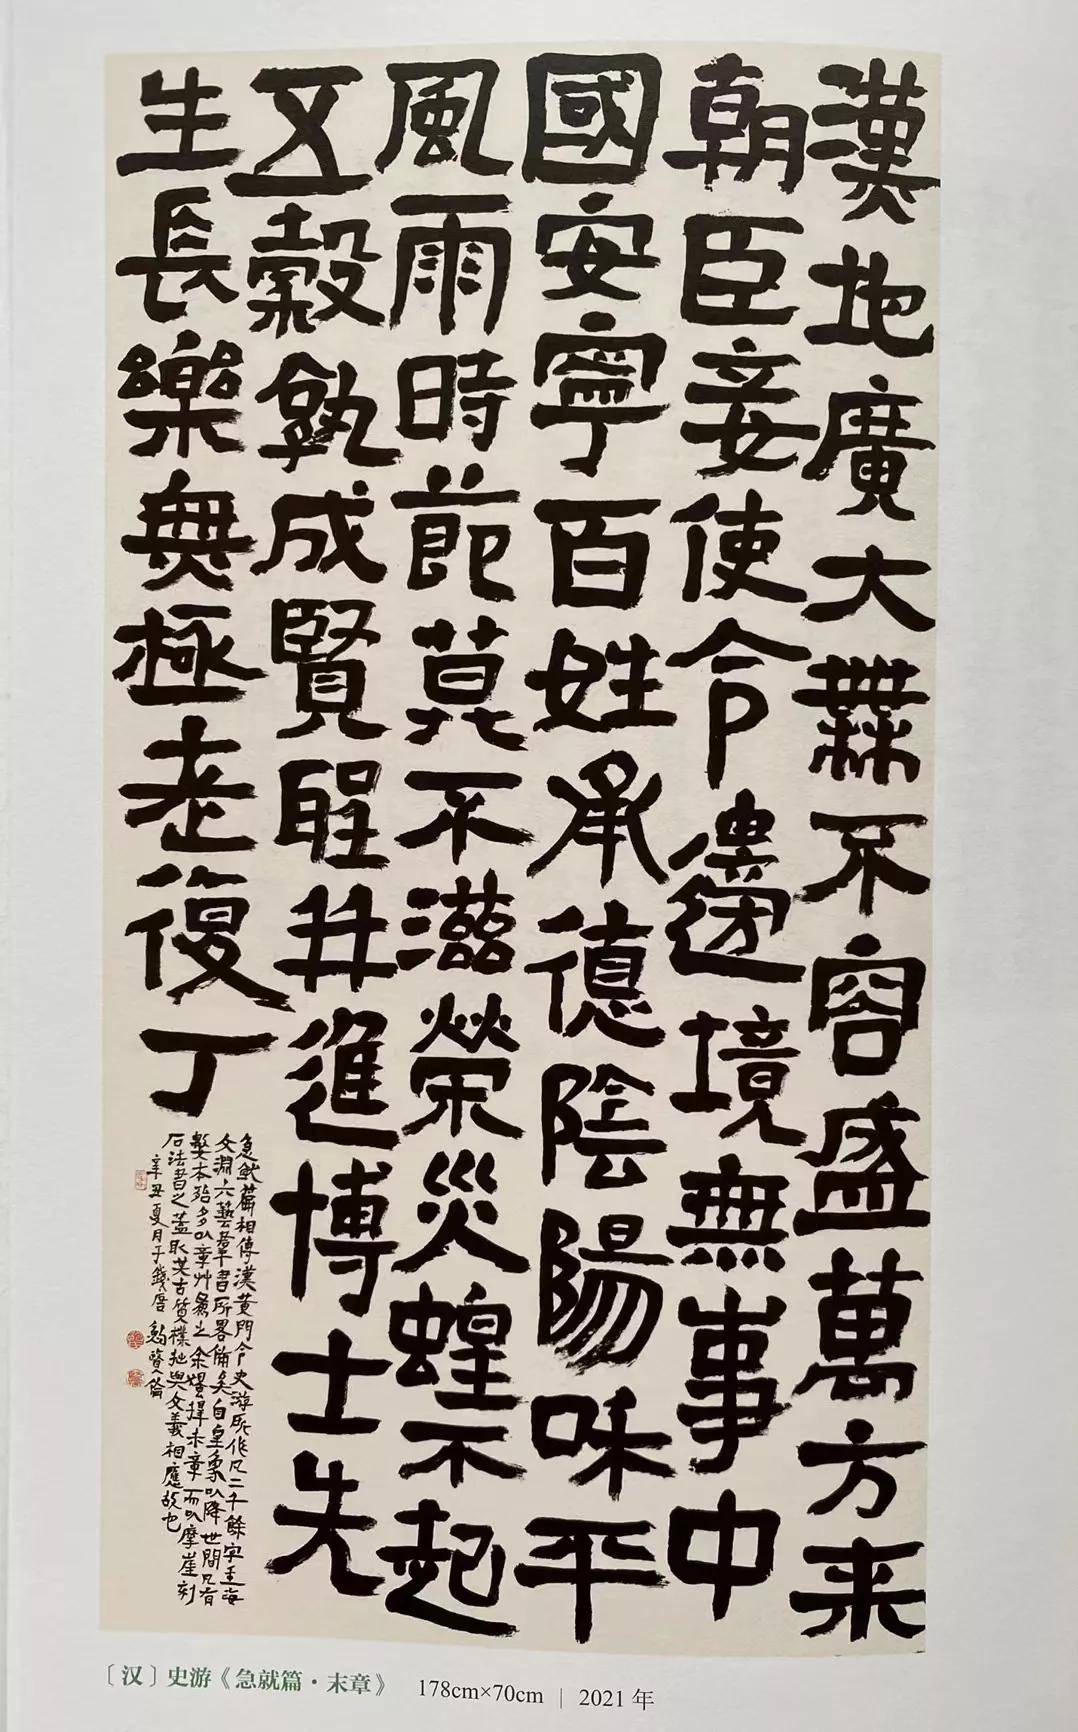 漢地廣大橆不容盛萬方来
朝臣妾使令邊境無事中
國安寧百姓承德陰陽咊平
風雨時節莫不滋榮災蝗不起
五穀孰成賢聖并進博士先
生長樂無極老復丁
急就篇相傳漢黄門令史游所作凡二千餘字
文淵六藝羣書所畧備矣自皇象以降世間凡有
本殆多以章艸爲之余擇末章而以摩崖刻
石法書之蓋取其古質樸拙與文義相應故也
辛丑夏月于錢唐
〔汉〕史游《急就篇·末章》 178cm×70cm | 2021 年